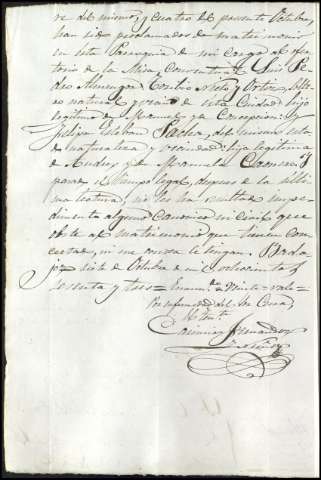 re del mismo; y cuatro del presente Octubre,
han sido proclamados de matrimonio
en esta Parroquia de mi cargo al ofer-
torio de la Misa Conventual, Luis Pe-
dro Nieto y Ortiz, solte-
ro natural y vecino de esta Ciudad hijo
legitimo de Manuel y de Concepcion: Y
Felipa Esteban Saenz, del mismo esta-
do naturaleza y vecindad hija legitima
de Andres y de Manuela Y
pasado el tiempo legal, despues de la ulti-
ma lectura, no les ha resultado impe-
dimento alguno canonico ni civil que
obste al matrimonio que tienen con-
certado, ni me consta le tengan. Bada-
joz siete de Octubre de mil ochocientos
sesenta y tres = Enm.do = vale =
Por enfermedad del Sr. Cura,
El Ten.te
Fernandez